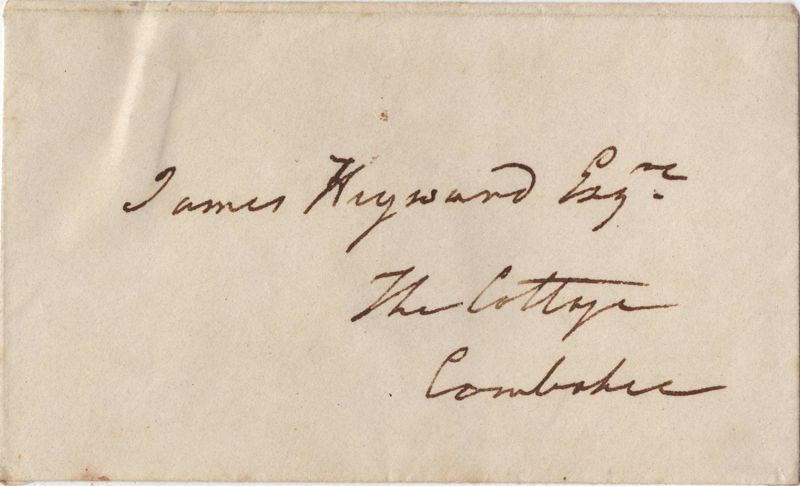 James Heyward Esqre.
The Cottage
Combahee